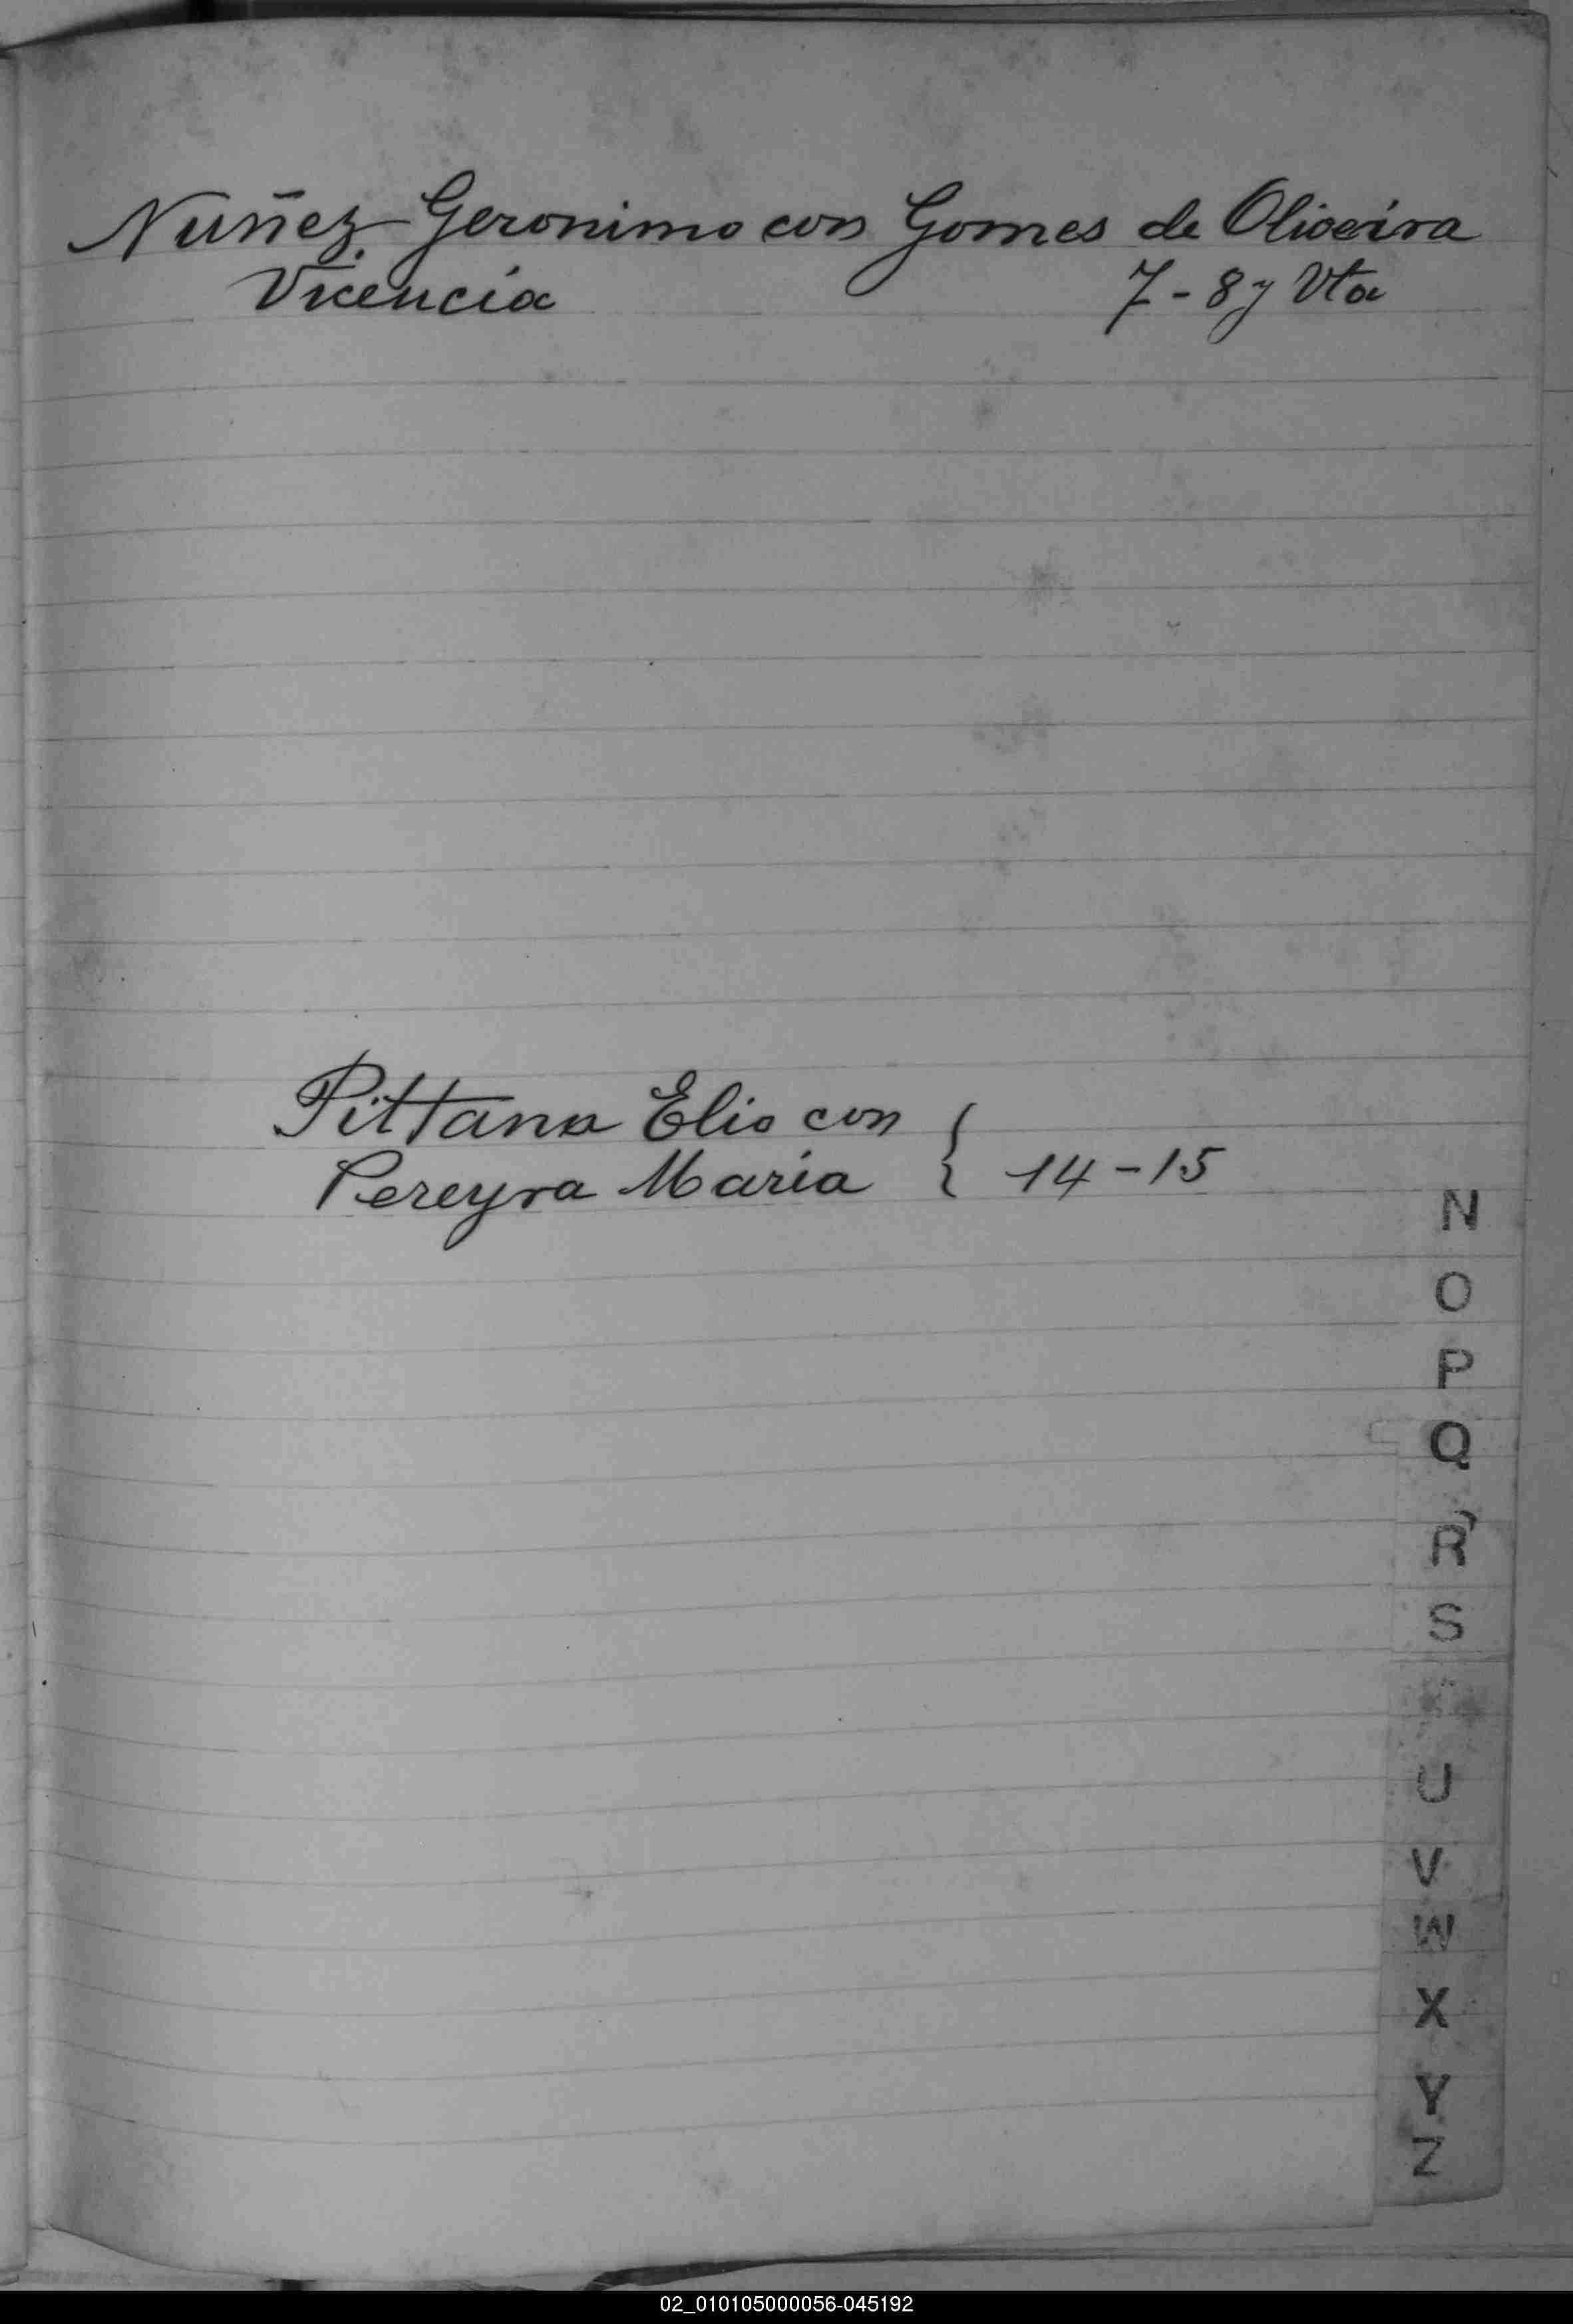 Nuñez Geronimo con Gomes de Oliveira
Vicencia 7-8 y Vta
Pittana Elio con
Pereyra Maria { 14-15
N
O
P
Q
R
S
U
V
W
X
Y
Z
02_010105000056-045192